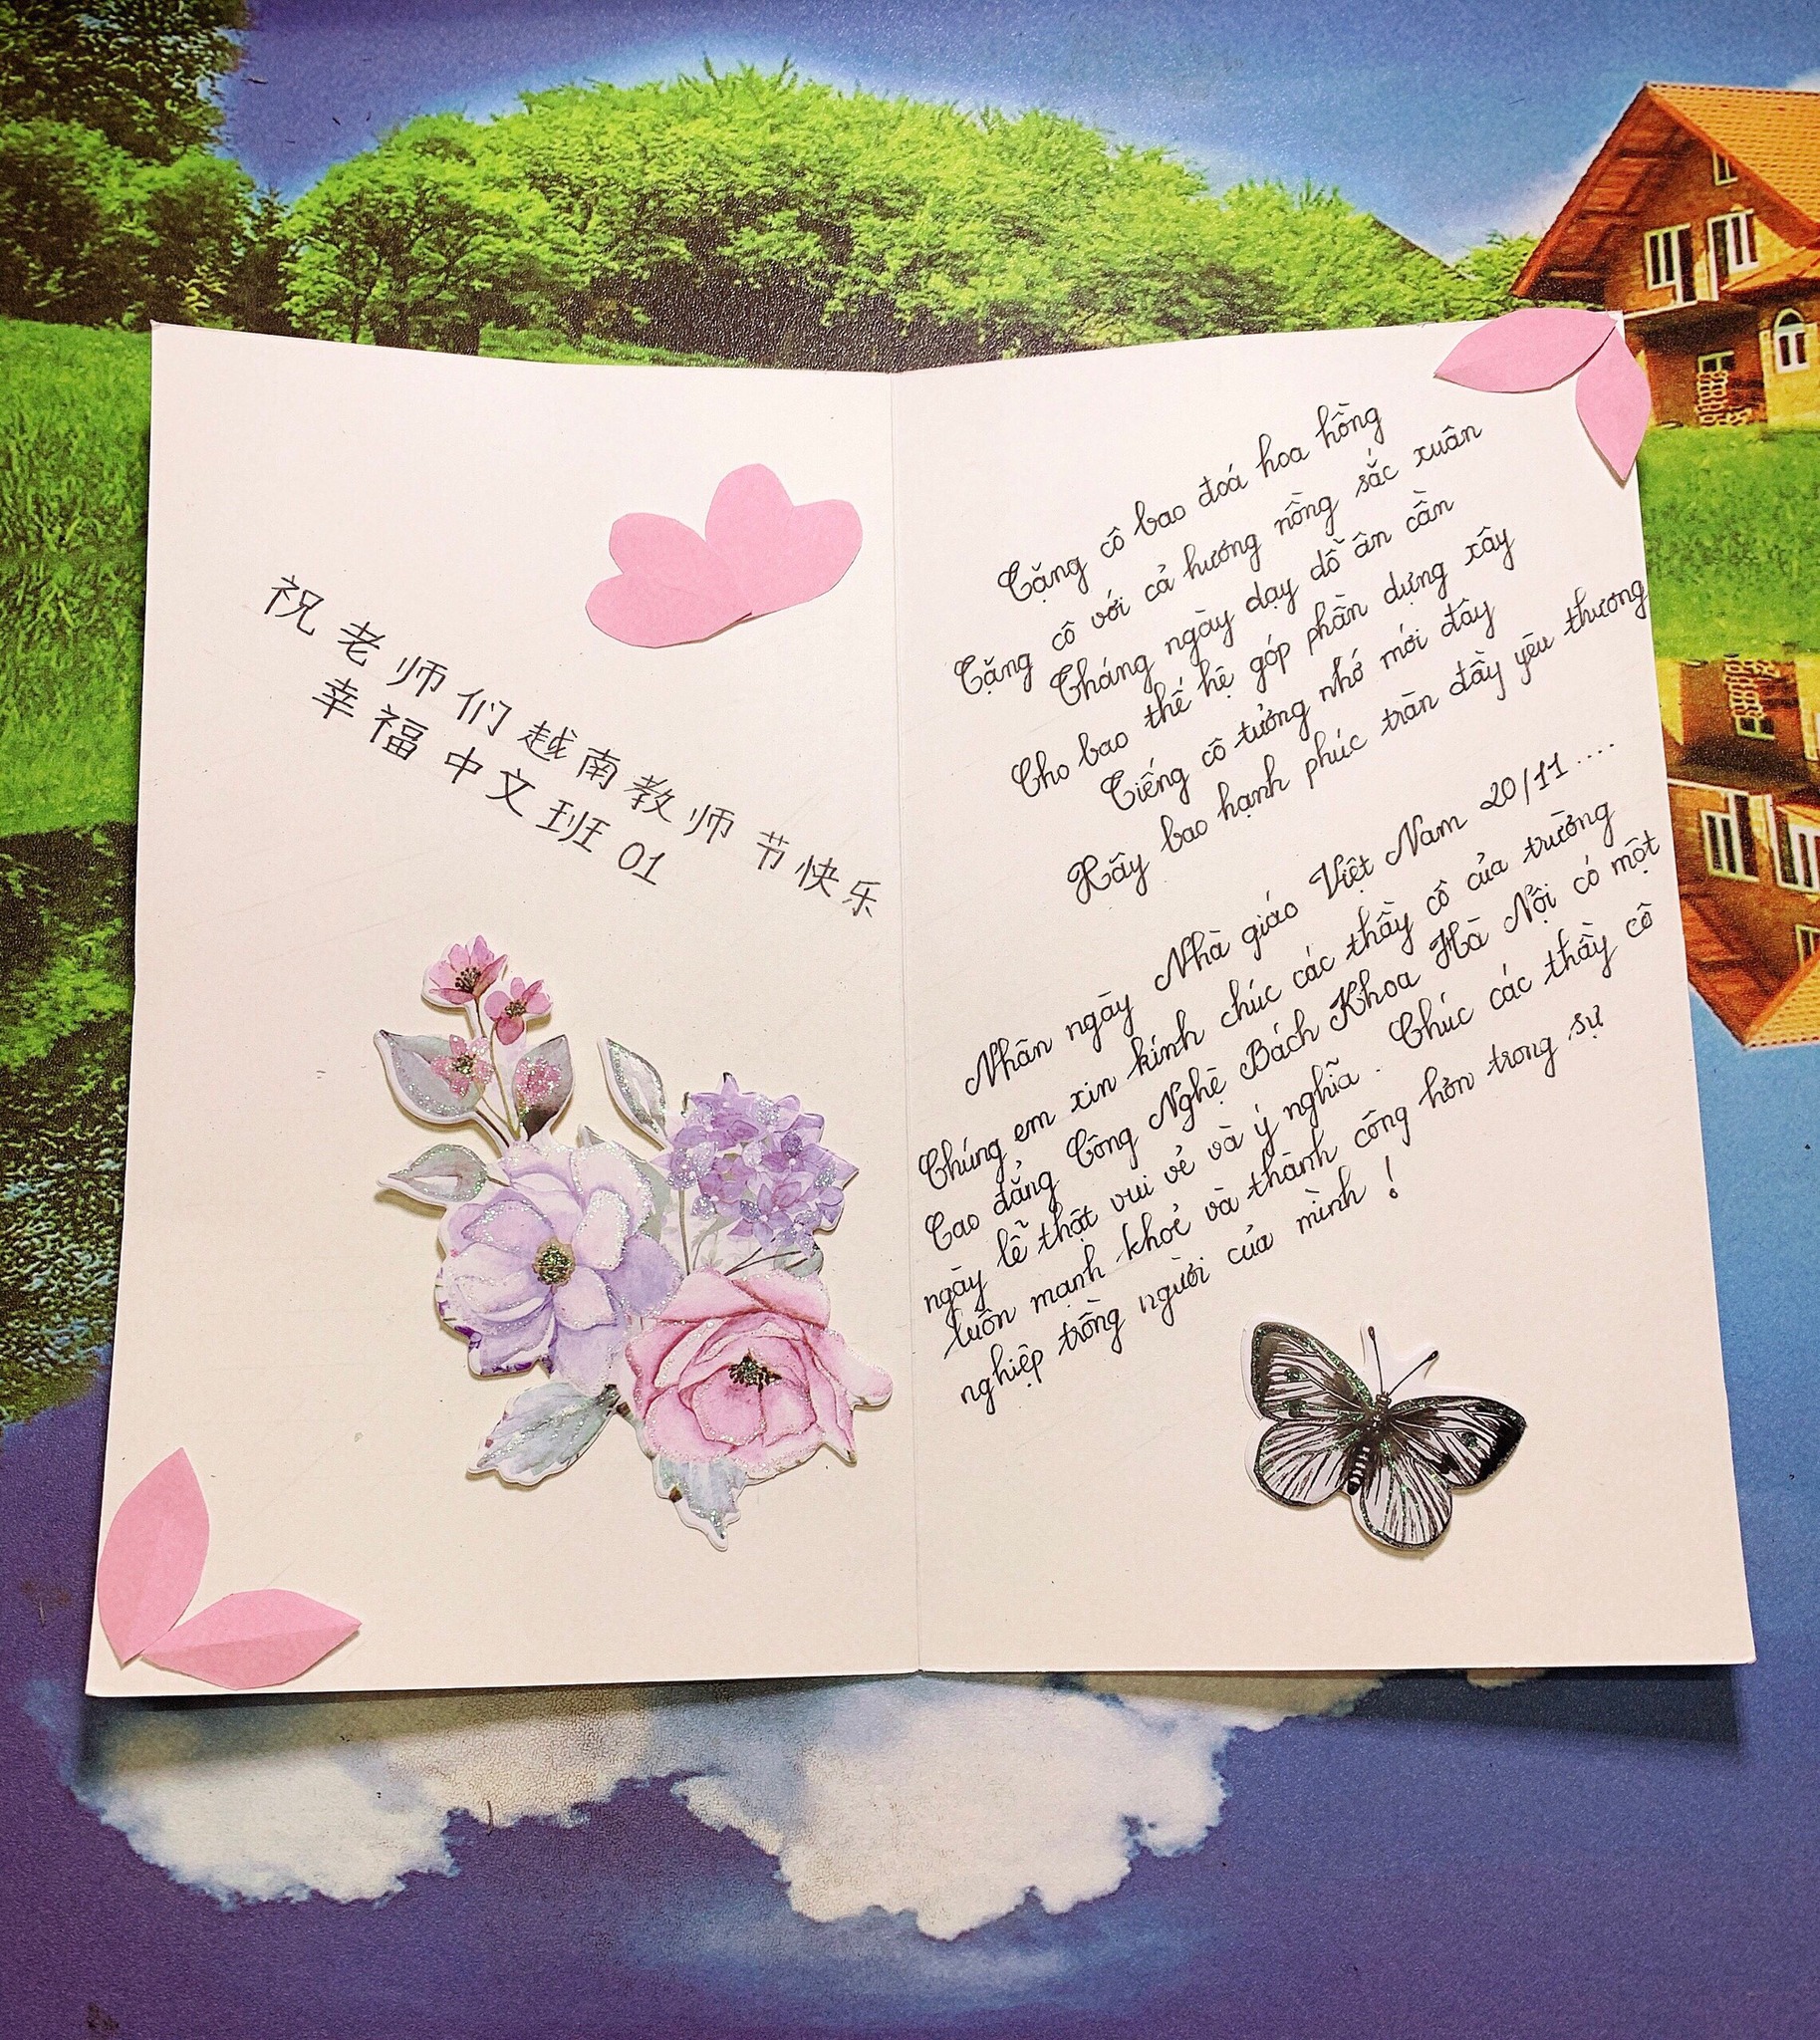 祝老师们越南教师节快乐
幸福中文班01
Tặng cô bao đoá hoa hồng
Tặng cô với cả hương nồng sắc xuân
Tháng ngày dạy dỗ ân cần
Cho bao thế hệ góp phần dựng xây
Tiếng cô tưởng nhớ mới đây
Hãy bao hạnh phúc tràn đầy yêu thương
Nhân ngày Nhà giáo Việt Nam 20/11....
Chúng em xin kính chúc các thầy cô của trường
Cao đẳng Công Nghệ Bách Khoa Hà Nội có một
ngày lễ thật vui vẻ và ý nghĩa. Chúc các thầy cô
luôn mạnh khoẻ và thành công hơn trong sự
nghiệp trồng người của mình!